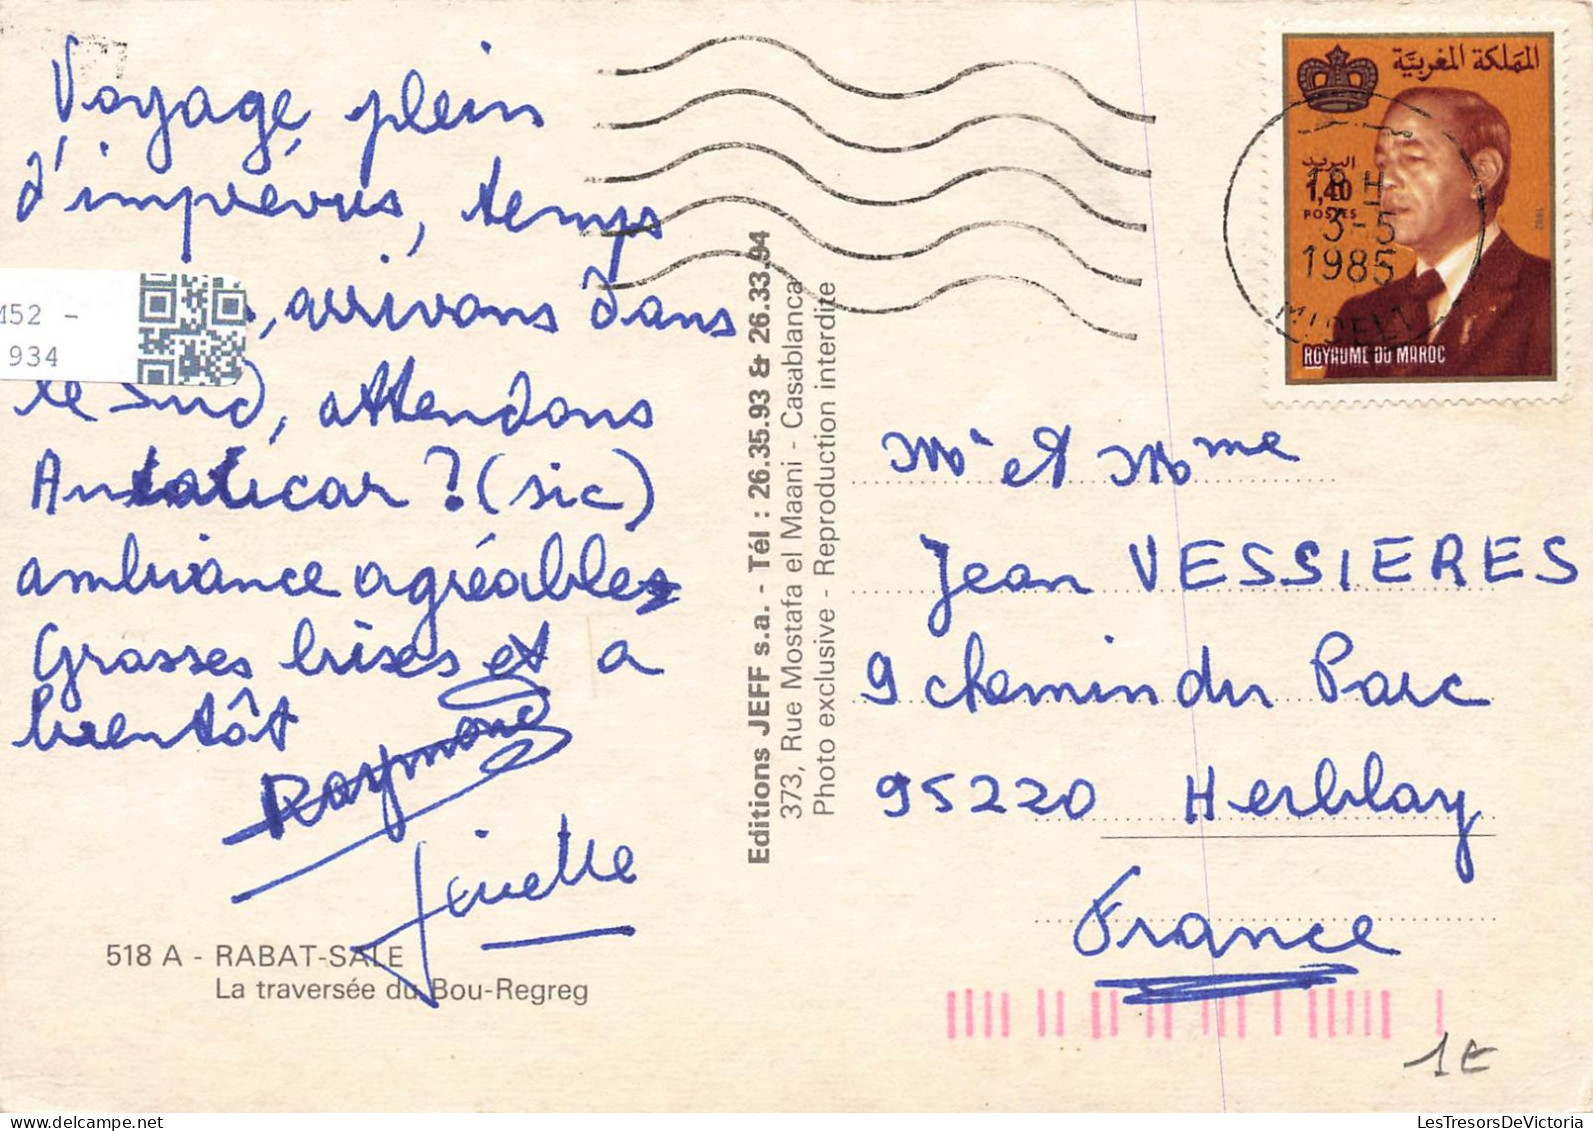 Voyage plein
d'imprévus, temps
, arrivons dans
le Sud, attendons
? (sic)
ambiance agréable
Grosses bises et a
bientôt
Raymond
Ginette
M52 -
934
518 A - RABAT-SALE
La traversée du Bou-Regreg
Editions JEFF s.a. - Tél : 26.35.93 & 26.33.94
373, Rue Mostafa el Maani - Casablanca
Photo exclusive - Reproduction interdite
المملكة المغربية
البريد
1,40
POSTES
1982
ROYAUME DU MAROC
18 H
3-5
1985
MIDELT
Mr et Mme
Jean VESSIERES
9 chemin du Parc
95220 Herblay
France
1€
LesTresorsDeVictoria